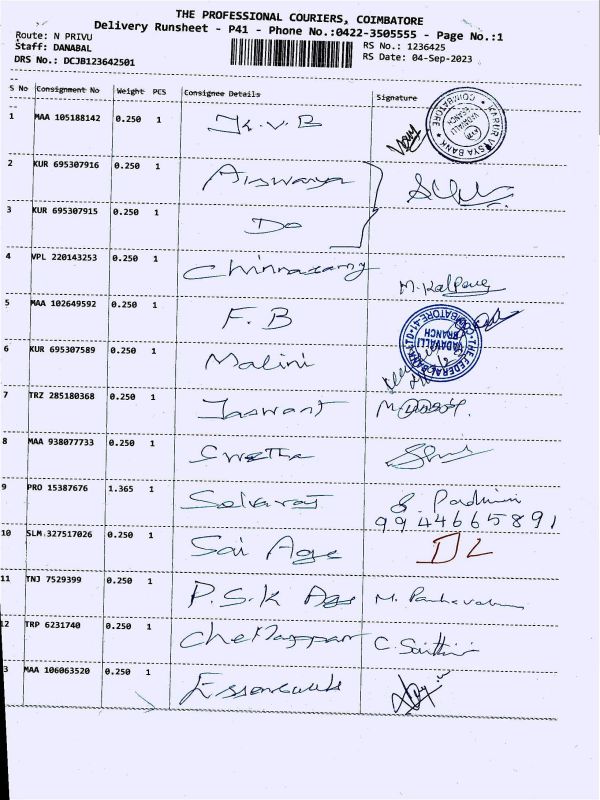 THE PROFESSIONAL COURIERS, COIMBATORE
Delivery Runsheet - P41 - Phone No.:0422-3505555 - Page No.:1
Route: N PRIVU
RS No.: 1236425
Staff: DANABAL
RS Date: 04-Sep-2023
DRS No.: DCJB123642501
S No Consignment No Weight PCS Consignee Details Signature
1 MAA 105188142 0.250 1 J.K.V.B
KARUR VYSYA BANK COIMBATORE
2 KUR 695307916 0.250 1 Aiswarya
3 KUR 695307915 0.250 1 Do
4 VPL 220143253 0.250 1 Chinnasamy M. Kalpana
5 MAA 102649592 0.250 1 F.B
THE FEDERAL BANK VADAVALLI BRANCH
6 KUR 695307589 0.250 1 Malini
7 TRZ 285180368 0.250 1 Jaswant
8 MAA 938077733 0.250 1 Swetha
9 PRO 15387676 1.365 1 Selvaraj
9944665891
10 SLM 327517026 0.250 1 Sai Age DL
11 TNJ 7529399 0.250 1 P.S.K Age
2 TRP 6231740 0.250 1 Chellappan
3 MAA 106063520 0.250 1